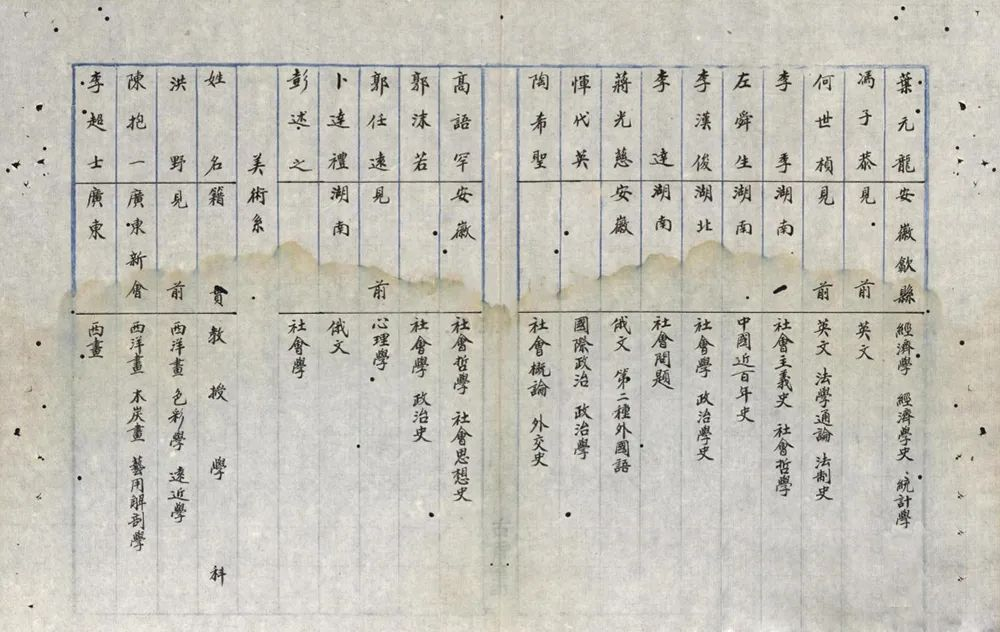 葉元龍 安徽歙縣 經濟學 經濟學史、統計學
馮子恭 見前 英文
何世楨 見前 英文 法學通論 法制史
李季 湖南 社會主義史 社會哲學
左舜生 湖南 中國近百年史
李漢俊 湖北 社會學 政治學史
李達 湖南 社會問題
蔣光慈 安徽 俄文 第二種外國語
惲代英 國際政治 政治學
陶希聖 社會概論 外交史
高語罕 安徽 社會哲學 社會思想史
郭沫若 社會學 政治史
郭任遠 見前 心理學
卜達禮 湖南 俄文
彭述之 社會學
美術系
姓名 籍貫 教授學科
洪野 見前 西洋畫 色彩學 遠近學
陳抱一 廣東新會 西洋畫 木炭畫 藝用解剖學
李超士 廣東 西畫